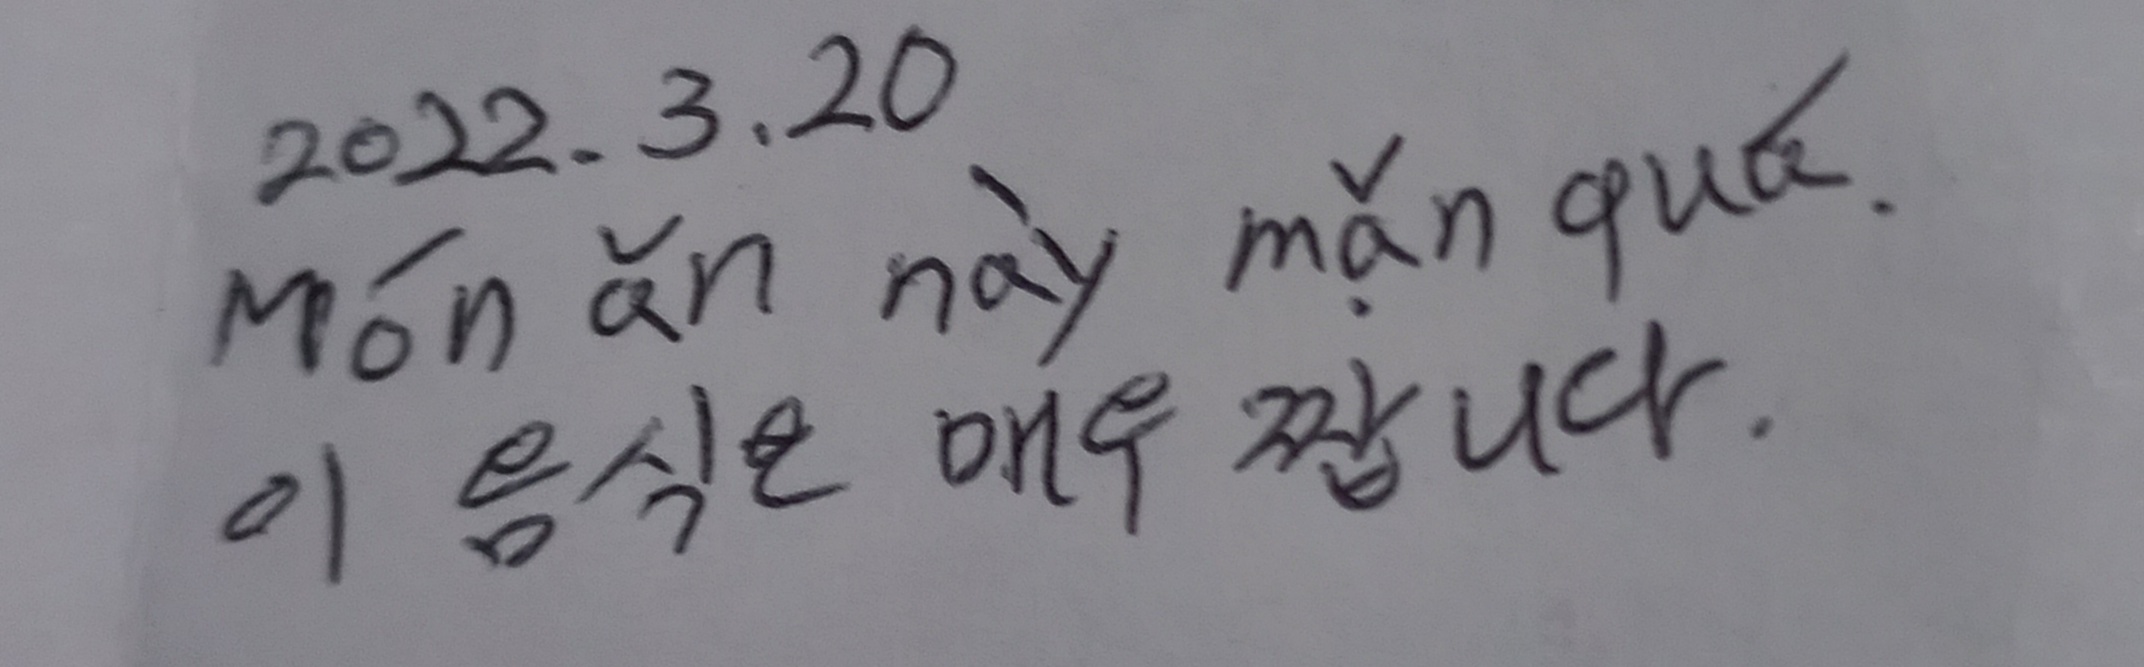 2022.3.20
Món ăn này mặn quá.
이 음식은 매우 짭니다.